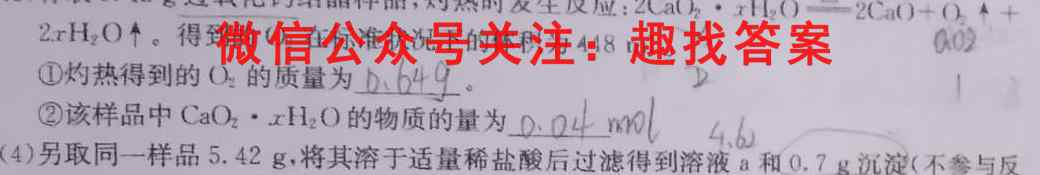 品,灼热时发生反应:2CaO₂·xH₂O══2CaO+O₂↑+
2xH₂O↑。得到 在标准状况下的体积为448 0.02
微信公众号关注:趣找答案
①灼热得到的O₂的质量为0.64g。 2 1
②该样品中CaO₂·xH₂O的物质的量为0.04 mol
(4)另取同一样品5.42 g,将其溶于适量稀盐酸后过滤得到溶液a和0.7 g沉淀(不参与反